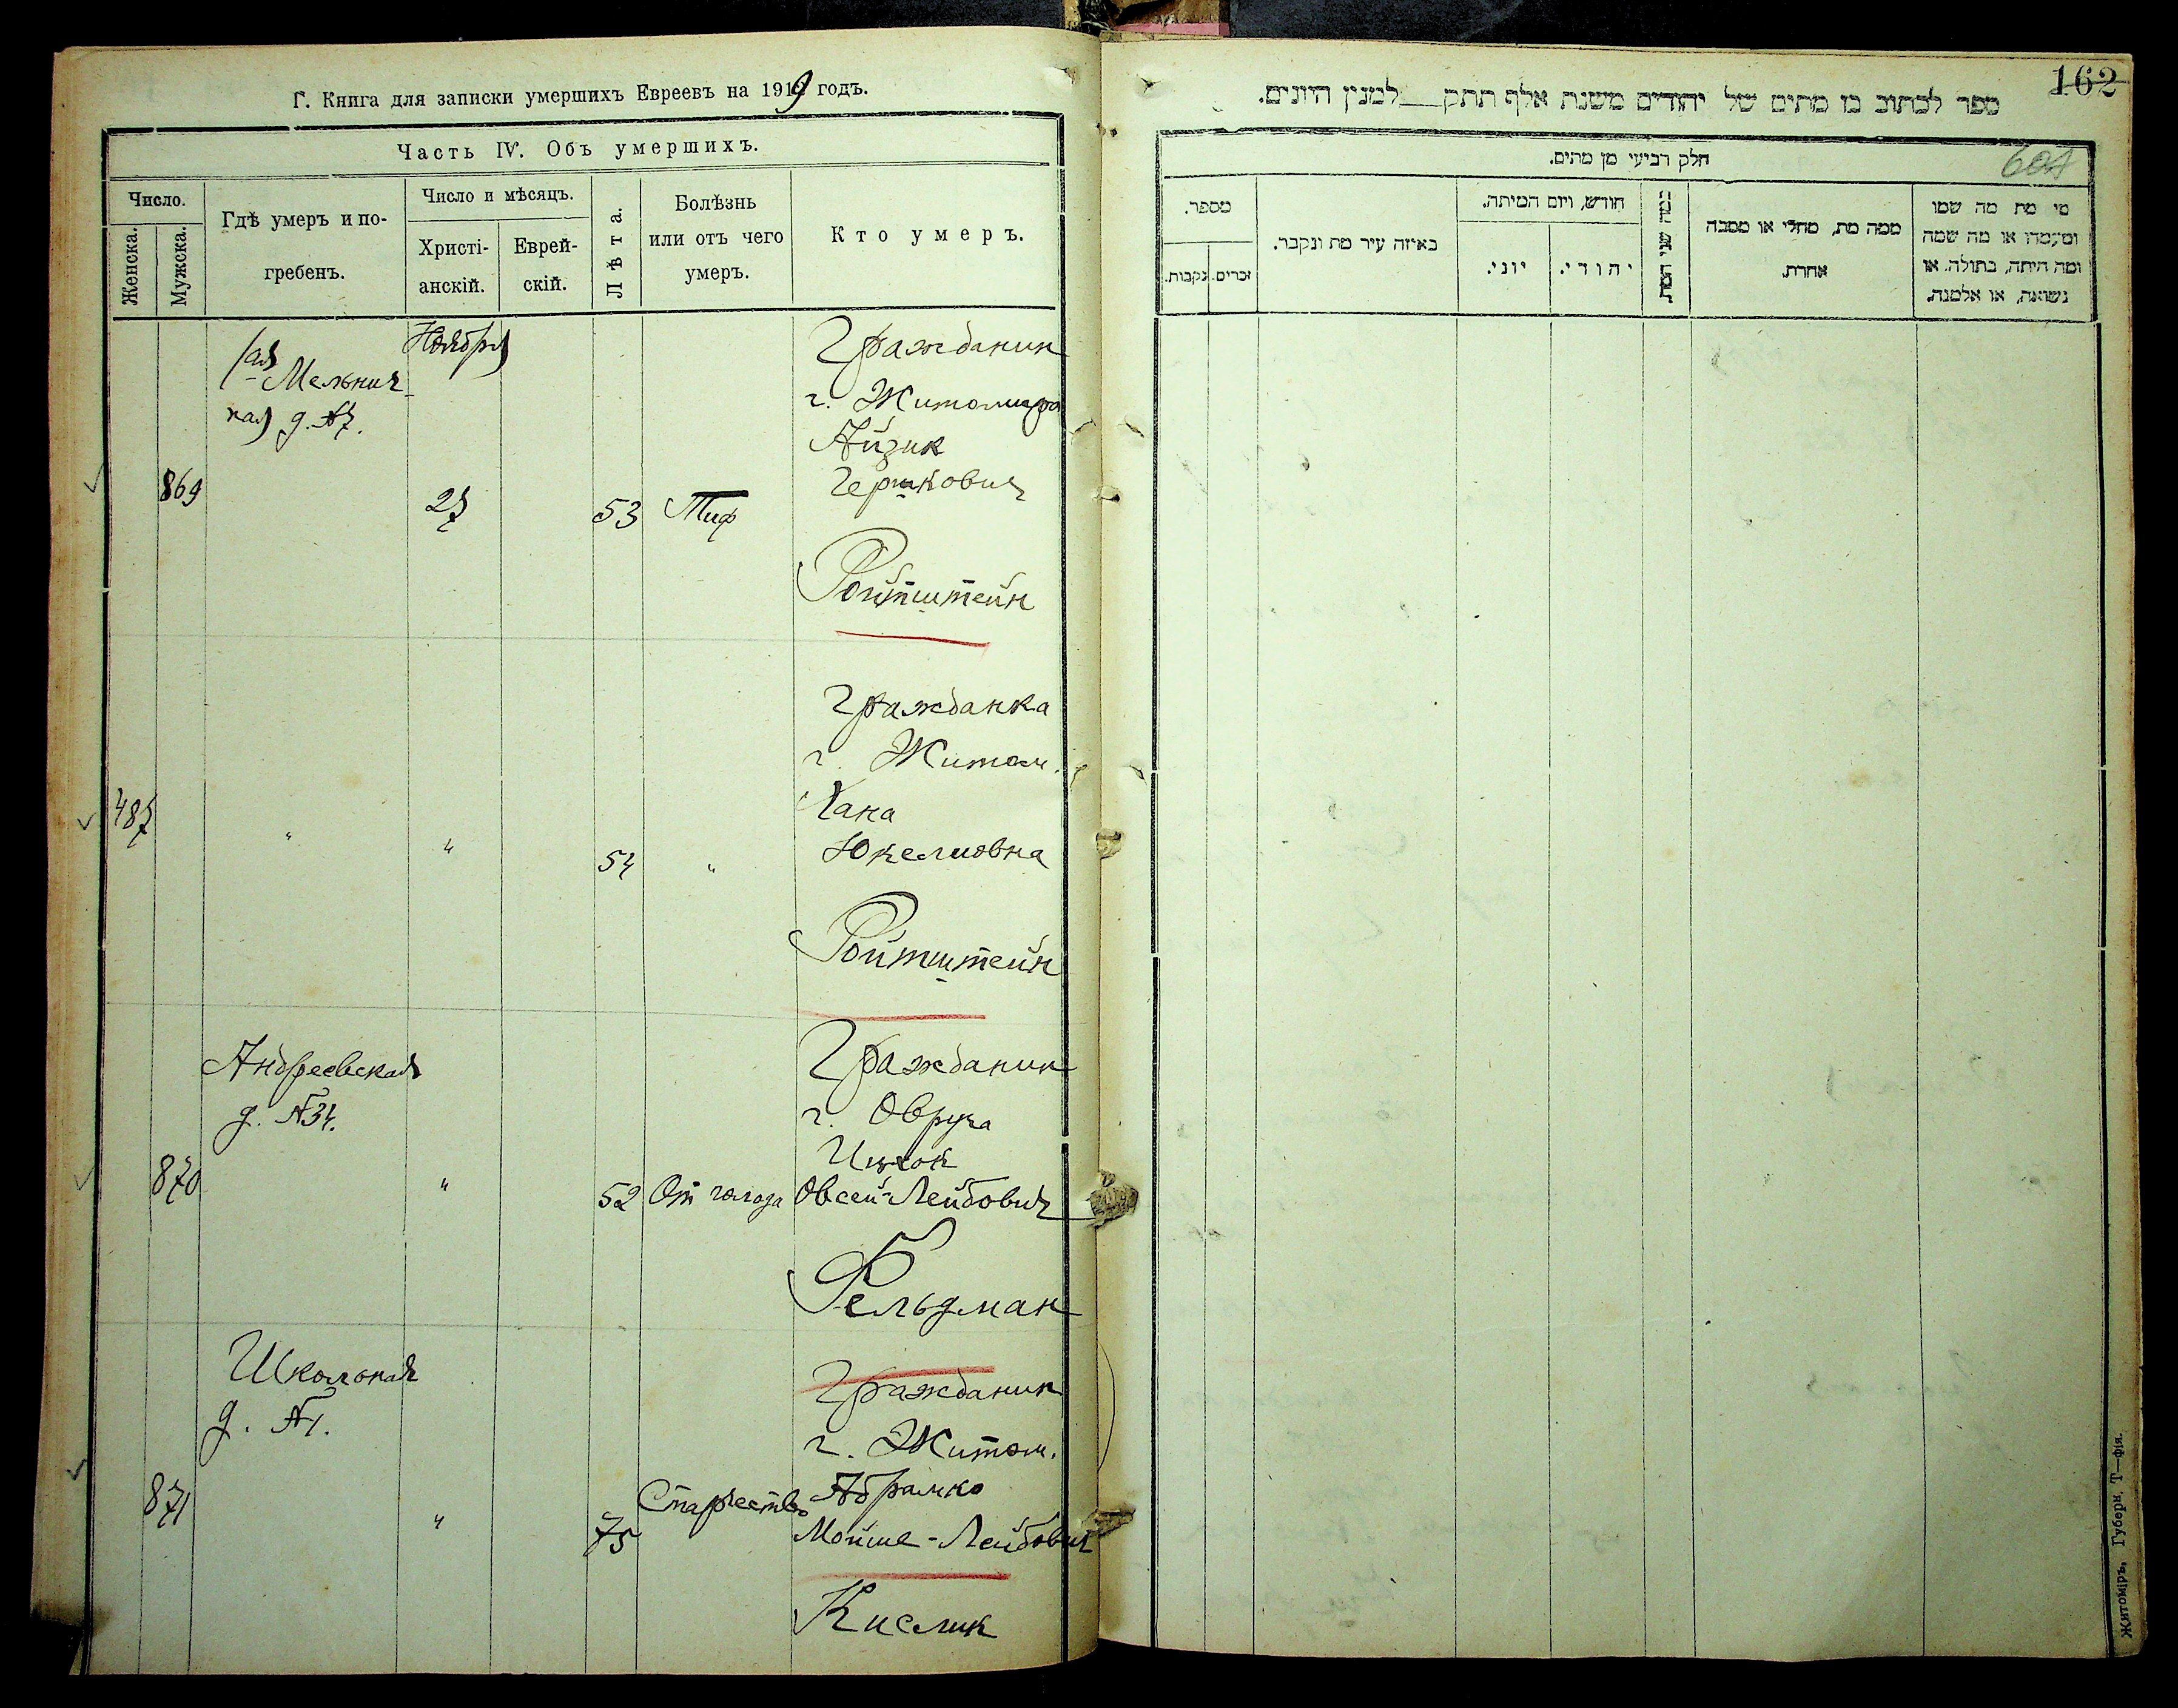 Г. Книга для записки умершихъ Евреевъ на 1919 годъ.
Часть IV. Объ умершихъ.
Число.
Женска.
Мужска.
Гдѣ умеръ и по-
гребенъ.
Число и мѣсяцъ.
Христі-
анскій.
Еврей-
скій.
Лѣта.
Болѣзнь
или отъ чего
умеръ.
Кто умеръ.
Ноября
Мельнич
ная д. №7.
869
27
53
Тиф
Гражданин
г. Житомира
Айзик
Гершкович
Ройтштейн
487
"
"
54
"
Гражданка
г. Житом.
Хана
Юкелиовна
Ройтштейн
Андреевская
д. №34.
870
"
52
От голода
Гражданин
г. Овруча
Ицхок
Овсей-Лейбович
Фельдман
Школьная
д. №1.
871
"
75
Старчество
Гражданин
г. Житом.
Абрамко
Мойше-Лейбович
Кислик
162
ספר לכתוב בו מתים של יהודים משנת אלף תתק__למנין היונים.
חלק רביעי מן מתים.
מספר.
נקבות.
זכרים.
באיזה עיר מת ונקבר.
חודש, ויום המיתה.
יוני.
יהודי.
כמה שני המת
ממה מת, מחלי או מסבה
אחרת.
מי מת מה שמו
ומעמדו או מה שמה
ומה היתה, בתולה, או
נשואה, או אלמנה.
Житоміръ, Губерн. Т—фія.